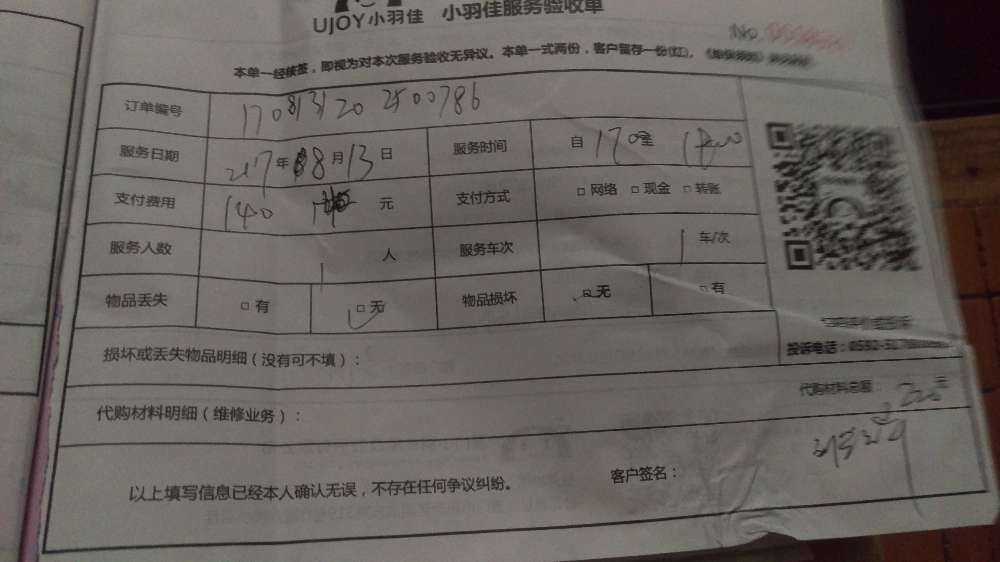 UJOY小羽佳 小羽佳服务验收单
No
本单一经续签，即视为对本次服务验收无异议。本单一式两份，客户留存一份(红)，
订单编号 170813120 2500786
服务日期 2017年88月13日 服务时间 自1700至1800
支付费用 140 元 支付方式 □网络 □现金 □转账
服务人数 1 人 服务车次 1 车/次
物品丢失 □有 □无 物品损坏 □无 □有
损坏或丢失物品明细（没有可不填）：
投诉电话：0592-
代购材料明细（维修业务）： 代购材料总额： 元
以上填写信息已经本人确认无误，不存在任何争议纠纷。 客户签名：